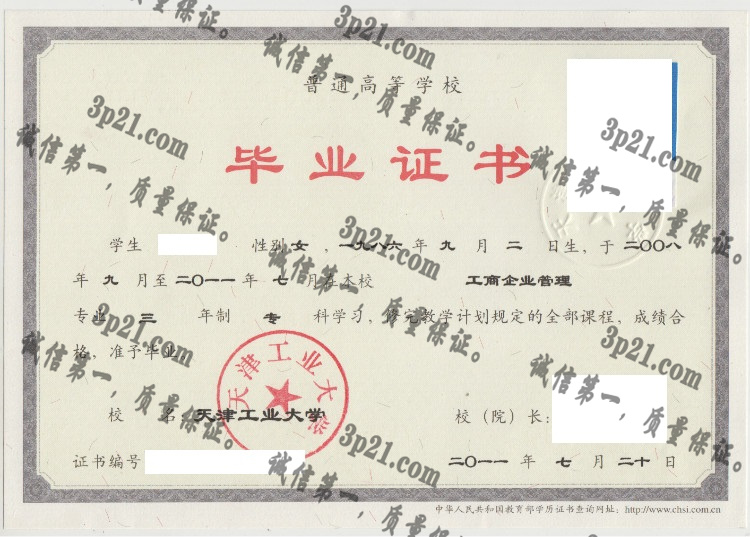 普通高等学校
毕业证书
学生 性别 女 ，一九八六 年 九 月 二 日生，于 二〇〇八
年 九 月至 二〇一一 年 七 月在本校 工商企业管理
专业 三 年制 专 科学习，修完教学计划规定的全部课程，成绩合
格，准予毕业。
天津工业大学
校 名 天津工业大学 校（院）长：
证书编号 二〇一一 年 七 月 二十 日
中华人民共和国教育部学历证书查询网址：http://www.chsi.com.cn
3p21.com
诚信第一，质量保证。
3p21.com
诚信第一，质量保证。
3p21.com
诚信第一，质量保证。
3p21.com
诚信第一，质量保证。
3p21.com
诚信第一，质量保证。
3p21.com
诚信第一，质量保证。
3p21.com
诚信第一，质量保证。
质量保证。